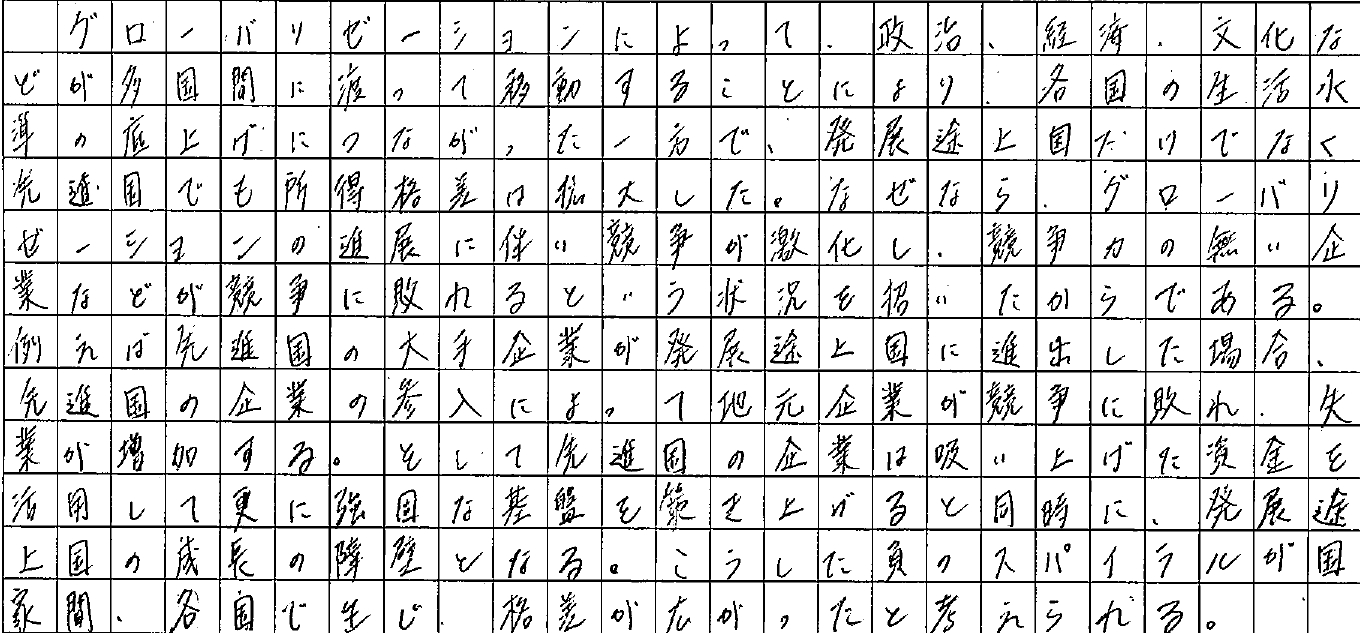 グローバリゼーションによって、政治、経済、文化な
どが多国間に渡って移動することにより、各国の生活水
準の底上げにつながった一方で、発展途上国だけでなく
先進国でも所得格差は拡大した。なぜなら、グローバリ
ゼーションの進展に伴い競争が激化し、競争力の無い企
業などが競争に敗れるという状況を招いたからである。
例えば先進国の大手企業が発展途上国に進出した場合、
先進国の企業の参入によって地元企業が競争に敗れ、失
業が増加する。そして先進国の企業は吸い上げた資金を
活用して更に強固な基盤を築き上げると同時に、発展途
上国の成長の障壁となる。こうした負のスパイラルが国
家間、各国で生じ、格差が広がったと考えられる。